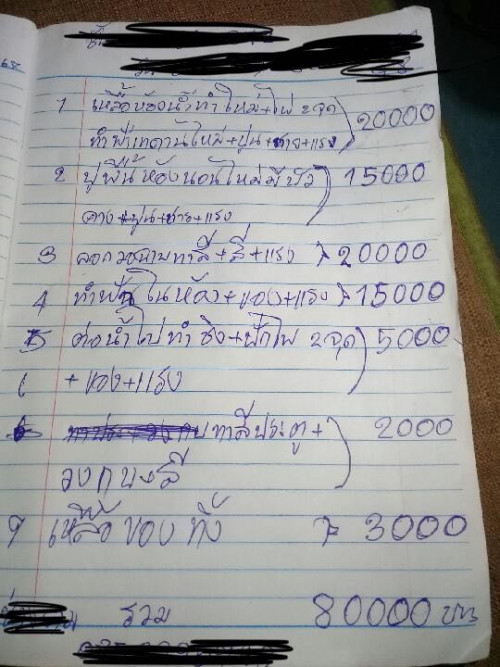 1 เหลื้อห้องน้ำทำใหม่+ไฟ 2จุด
ทำฝ้าเพดานใหม่+ปูน+ทราย+แรง 20000
2 ปูพื้นห้องนอนใหม่มีบัว 15000
+ปูน+ทราย+แรง
3 ทาสี+สี+แรง 20000
4 ทำฝ้าในห้อง+ของ+แรง 15000
5 ต่อน้ำไปทำซิ้ง+ปลักไฟ 2จุด 5000
+ของ+แรง
ทาสีประตู+ 2000
วงกบ+สี
7 เหลื้อของทิ้ง 3000
รวม 80000 บาท